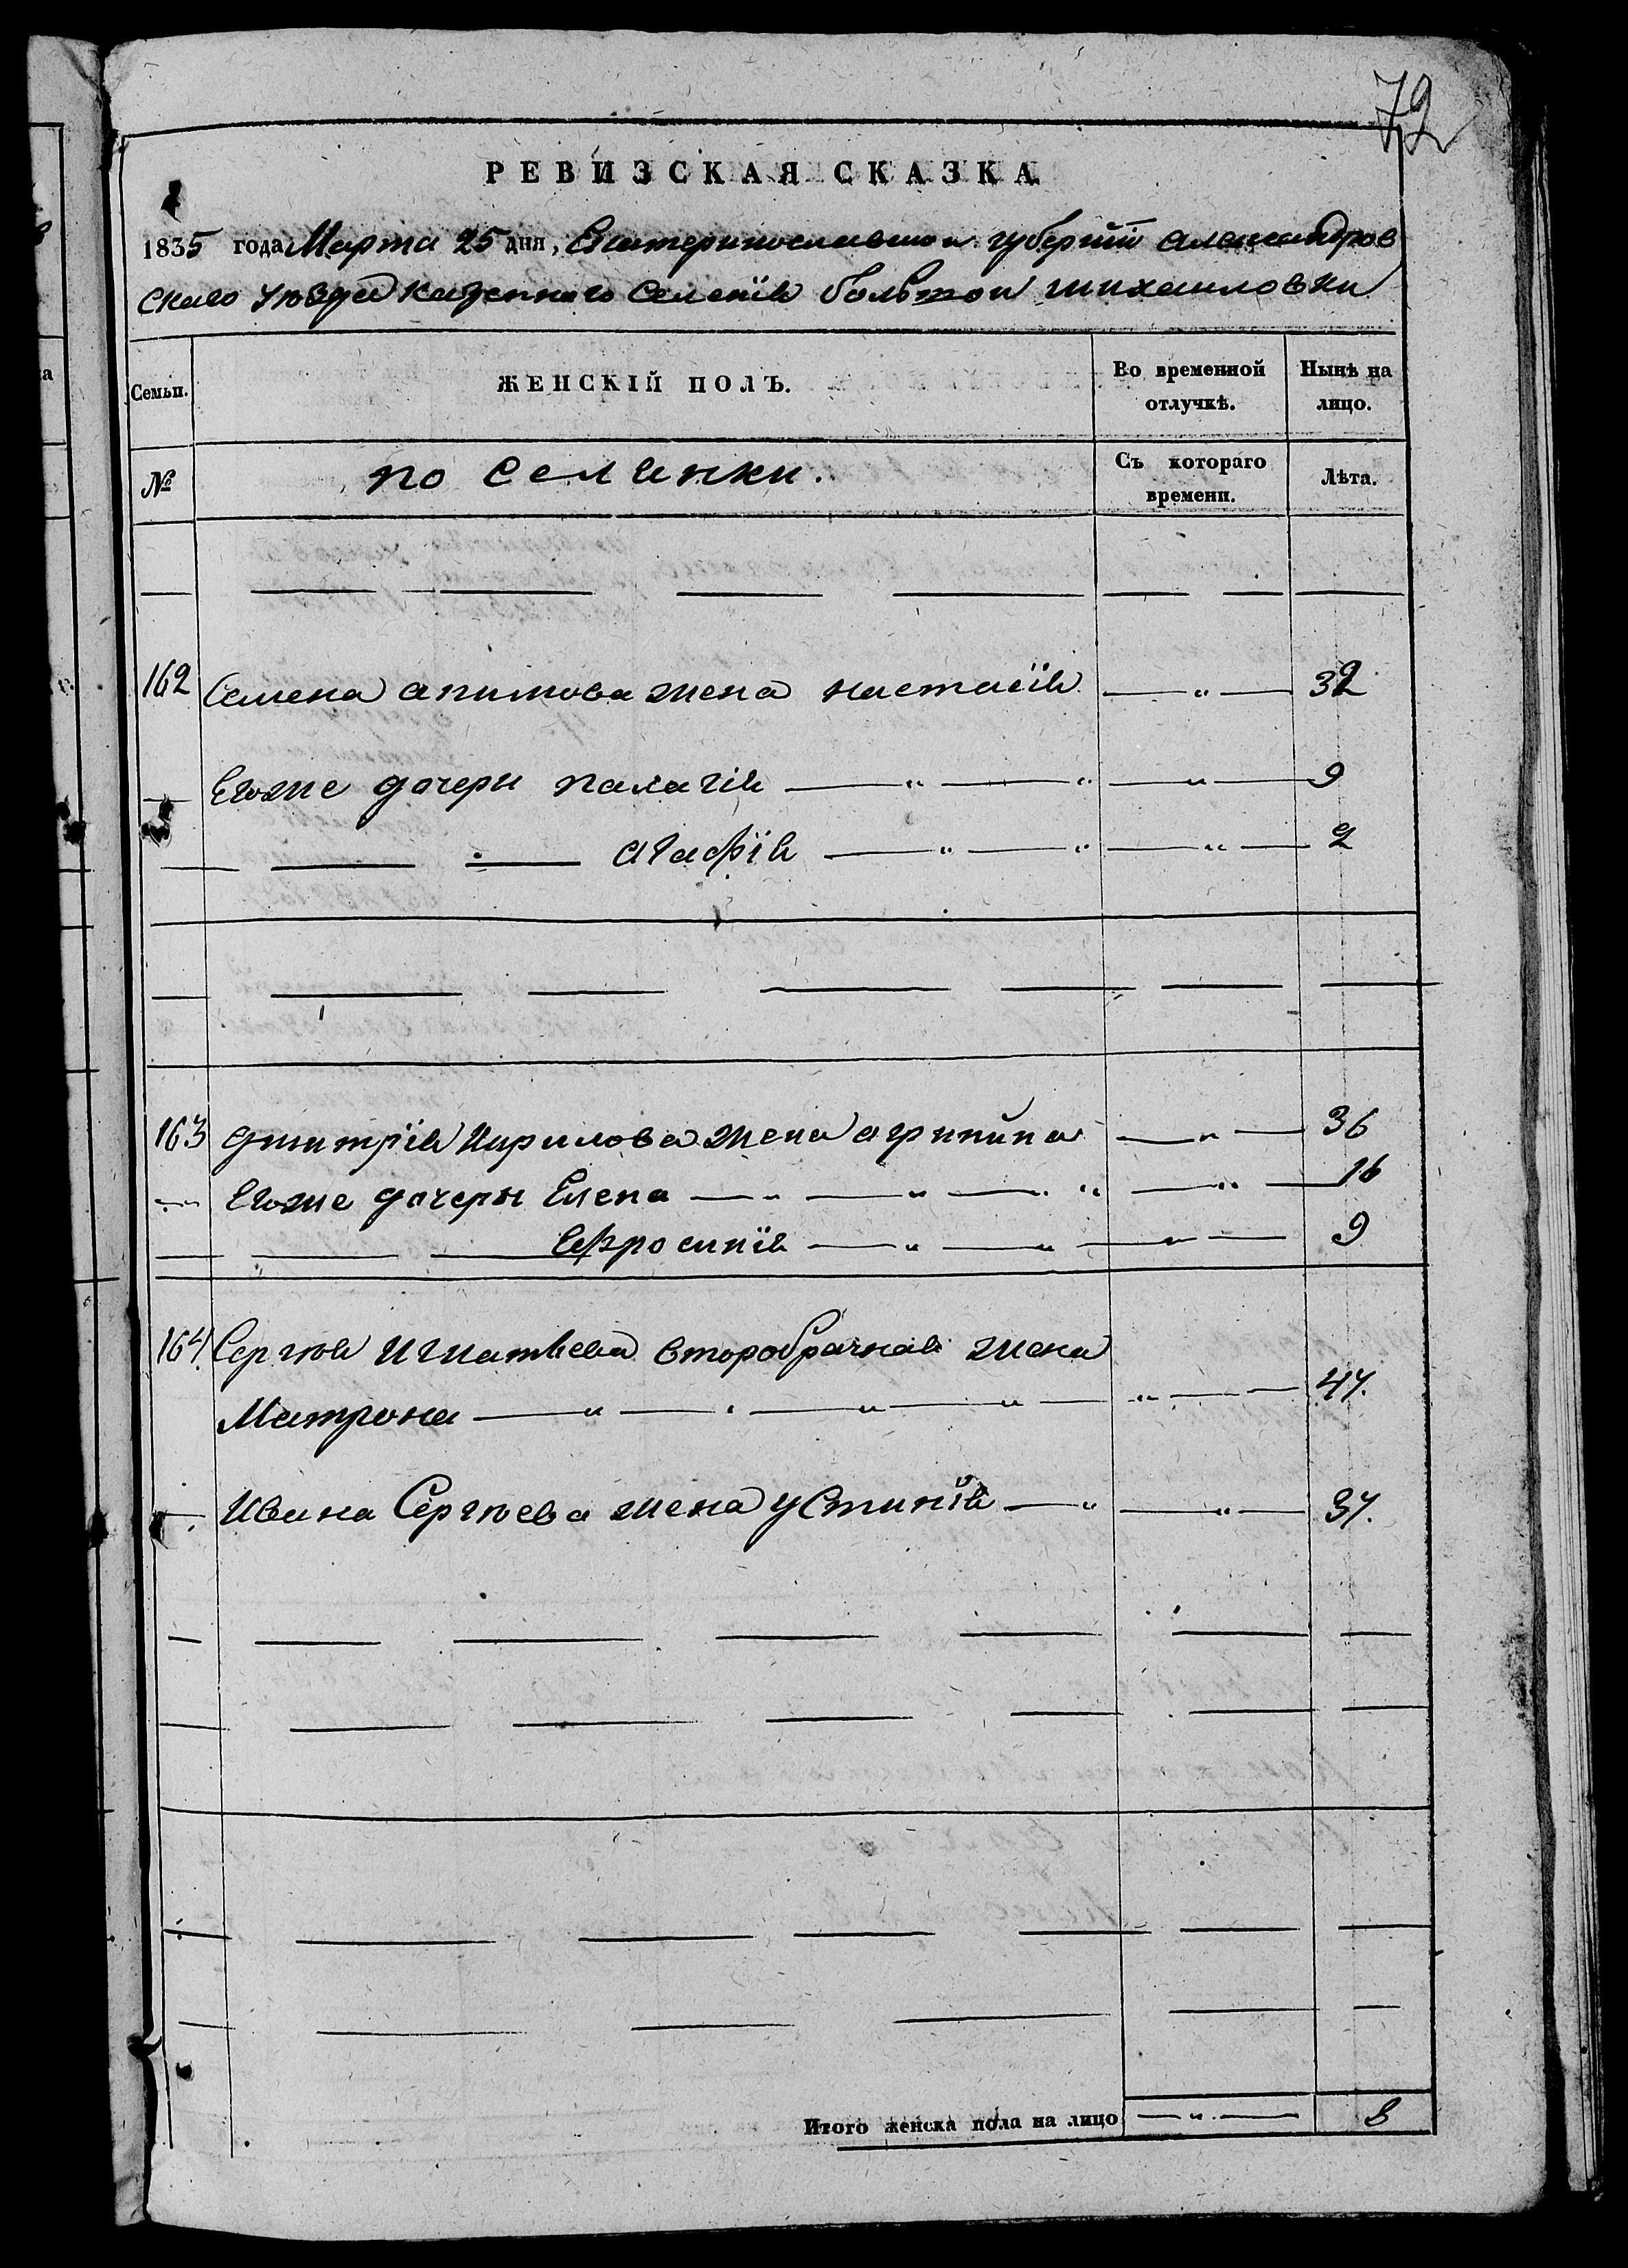 72
РЕВИЗСКАЯ СКАЗКА
1835 года Марта 25 дня, Екатеринославской губернїи александров
скаго уѣзда казенного Селенїя большой михаиловки
Семьи. ЖЕНСКІЙ ПОЛЪ. Во временной отлучкѣ. Нынѣ на лицо.
№ поселянки. Съ котораго времени. Лѣта.
162 Семена акимова жена настасїя — „ — 32
Егоже дочери палагїя — „ — „ — „ — 9
— агафїя — „ — „ — „ — 2
163 дмитрїя Кирилова жена агрипина — „ — 36
— „ — Егоже дочери Елена — „ — „ — „ — „ — 16
— Ефросинїя — „ — „ — „ — 9
164. Сергѣя Игнатьева второбрачная жена
Матрона — „ — „ — „ — „ — „ — 47.
— Ивана Сергѣева жена устинїя — „ — „ — 37.
Итого женска пола на лицо — „ — 8